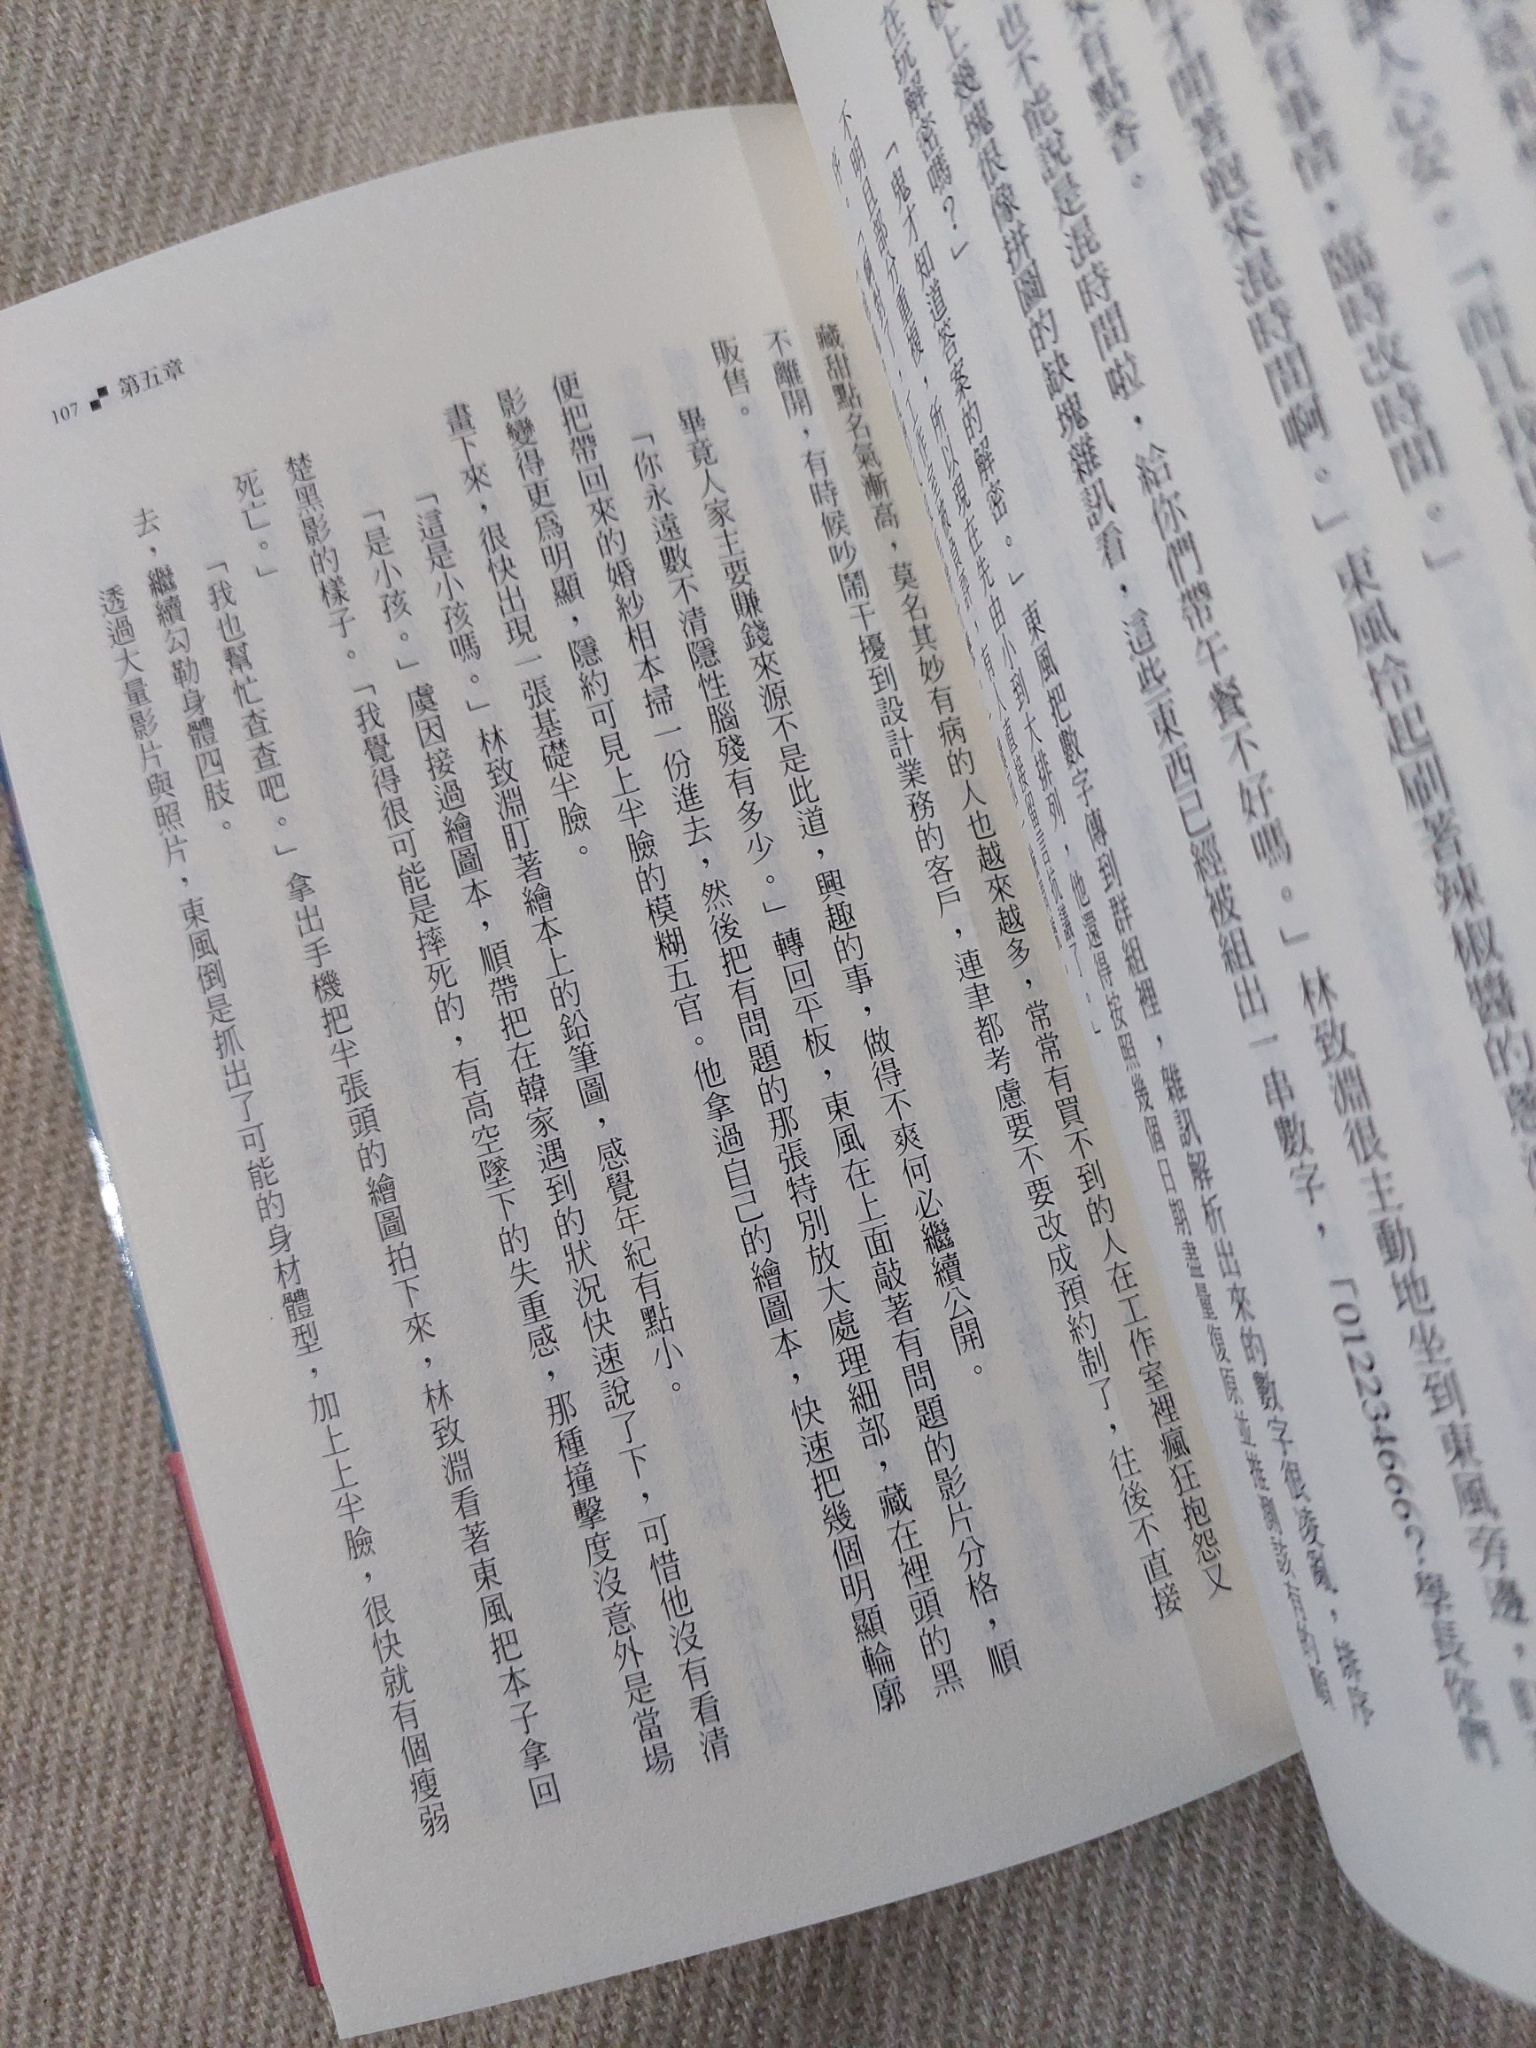 人心安。「面具
有事情，臨時改時間。」
才閒著跑來混時間啊。」東風拎起刷著辣椒醬的蔥
有點香。
也不能說是混時間啦，給你們帶午餐不好嗎。」林致淵很主動地坐到東風旁邊，
上幾塊很像拼圖的缺塊雜訊看，這些東西已經被組出一串數字，「012234666？學長你們
在玩解密嗎？」
「鬼才知道答案的解密。」東風把數字傳到群組裡，雜訊解析出來的數字很凌亂，排序
不明且部分重複，所以現在先由小到大排列，他還得按照幾個日期盡量復原並推測該有的順
藏甜點名氣漸高，莫名其妙有病的人也越來越多，常常有買不到的人在工作室裡瘋狂抱怨又
不離開，有時候吵鬧干擾到設計業務的客戶，連聿都考慮要不要改成預約制了，往後不直接
販售。
畢竟人家主要賺錢來源不是此道，興趣的事，做得不爽何必繼續公開。
「你永遠數不清隱性腦殘有多少。」轉回平板，東風在上面敲著有問題的影片分格，順
便把帶回來的婚紗相本掃一份進去，然後把有問題的那張特別放大處理細部，藏在裡頭的黑
影變得更為明顯，隱約可見上半臉的模糊五官。他拿過自己的繪圖本，快速把幾個明顯輪廓
畫下來，很快出現一張基礎半臉。
「這是小孩嗎。」林致淵盯著繪本上的鉛筆圖，感覺年紀有點小。
「是小孩。」虞因接過繪圖本，順帶把在韓家遇到的狀況快速說了下，可惜他沒有看清
楚黑影的樣子。「我覺得很可能是摔死的，有高空墜下的失重感，那種撞擊度沒意外是當場
死亡。」
「我也幫忙查查吧。」拿出手機把半張頭的繪圖拍下來，林致淵看著東風把本子拿回
去，繼續勾勒身體四肢。
透過大量影片與照片，東風倒是抓出了可能的身材體型，加上上半臉，很快就有個瘦弱
107 第五章